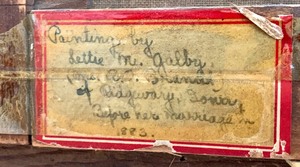 Painting by
Lettie M. Galby.
(Mrs.
of Ridgway, Iowa,
Before her marriage in
1883.